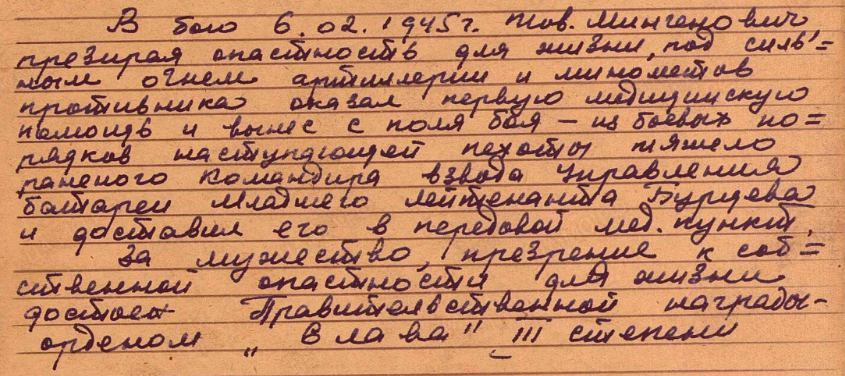 В бою 6.02.1945г. тов. Мингенович
презирая опастность для жизни, под силь=
ным огнем артиллерии и минометов
противника оказал первую медицинскую
помощь и вынес с поля боя – из боевых по=
рядков наступающей пехоты тяжело
раненого командира взвода управления
батареи младшего лейтенанта Бурцева
и доставил его в передовой мед. пункт.
За мужество, презрение к соб=
ственной опастности для жизни
достоен Правительственной награды-
орденом „Слава" III степени